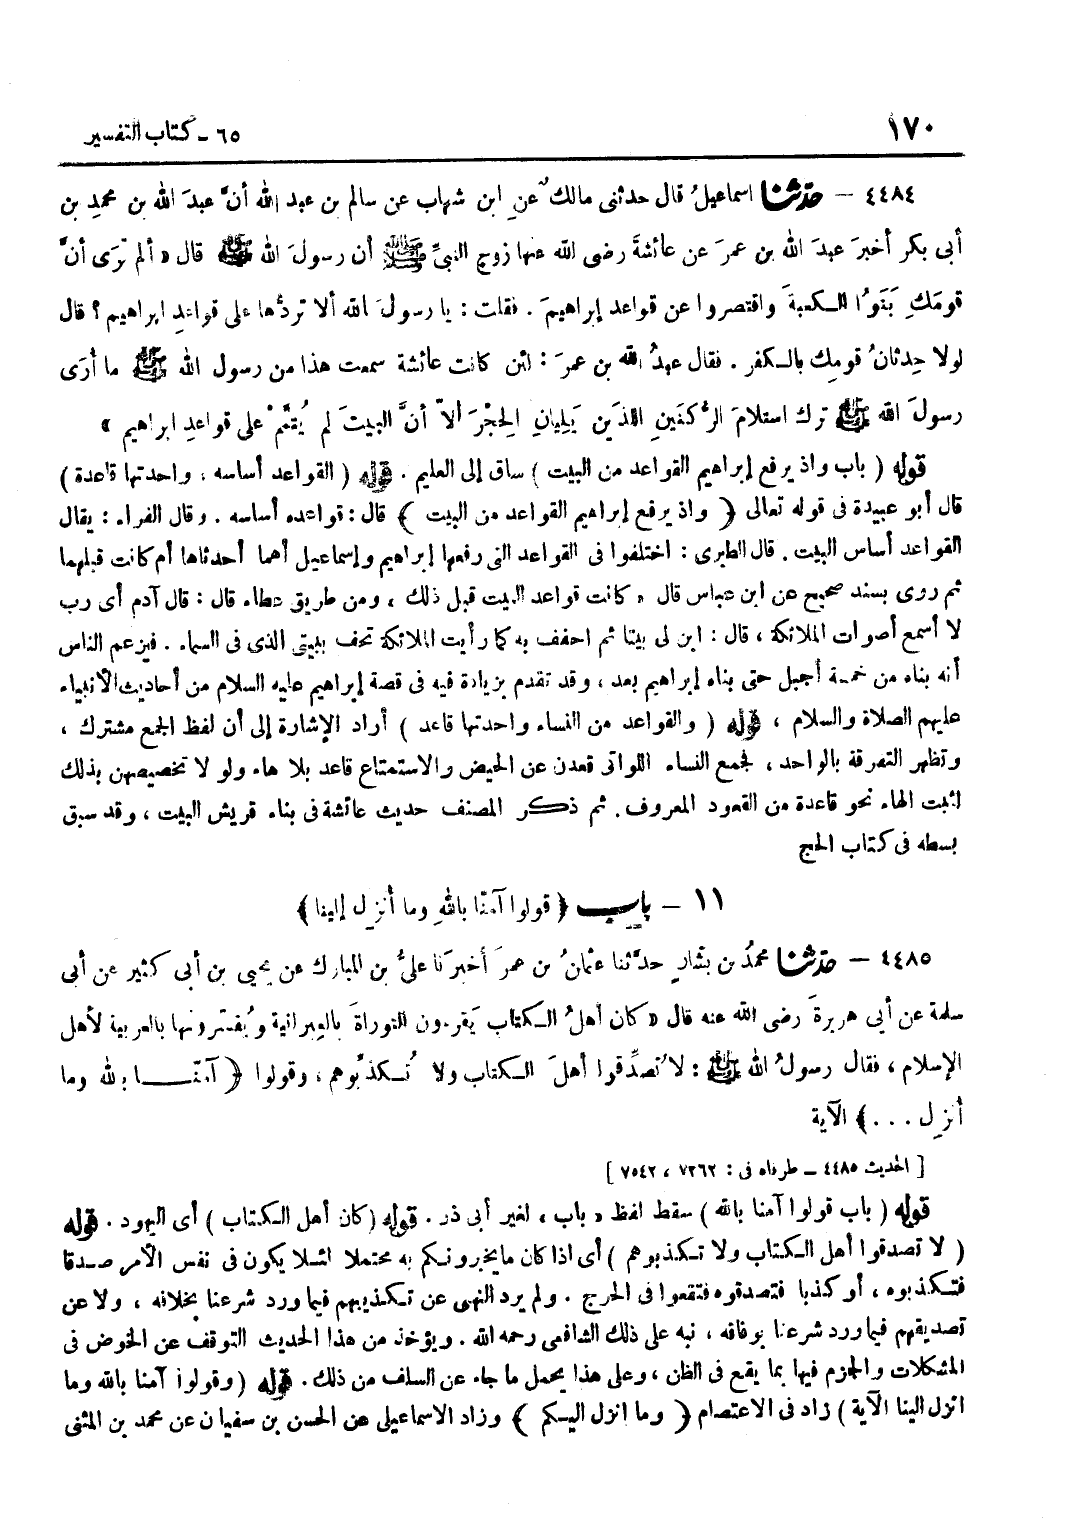 ١٧٠
٦٥ ـ كتاب التفسير
٤٤٨٤ – حدثنا اسماعيلُ قال حدثنى مالك عنِ ابن شهاب عن سالم بن عبد الله أنَّ عبدَ الله بن محمدِ بن
أبى بكر أخبرَ عبدَ الله بن عمرَ عن عائشةَ رضى الله عنها زوجِ النبىِّ ﷺ أن رسولَ الله ﷺ قال « ألم تَرَى أنَّ
قومَكِ بَنَوُا الـكعبةَ واقتصروا عن قواعد إبراهيمَ . فقلت : يا رسولَ الله ألا تردُّها على قواعدِ ابراهيم ؟ قال
لولا حِدثانُ قومِك بالـكفر . فقال عبدُ الله بن عمرَ : لئن كانت عائشة سمعت هذا من رسول الله ﷺ ما أُرَى
رسولَ الله ﷺ ترك استلامَ الرُّكنَينِ اللذَين يَلِيانِ الحِجْرَ ألاّ أنَّ البيتَ لم يُتمَّمْ على قواعدِ ابراهيم »
قوله ( باب واذ يرفع إبراهيم القواعد من البيت ) ساق إلى العليم . قوله ( القواعد أساسه ، واحدتها قاعدة )
قال أبو عبيدة فى قوله تعالى ﴿ واذ يرفع إبراهيم القواعد من البيت ﴾ قال : قواعده أساسه . وقال الفراء : يقال
القواعد أساس البيت . قال الطبرى : اختلفوا فى القواعد التى رفعها إبراهيم وإسماعيل أهما أحدثاها أم كانت قبلهما
ثم روى بسند صحيح عن ابن عباس قال « كانت قواعد البيت قبل ذلك ، ومن طريق عطاء قال : قال آدم أى رب
لا أسمع أصوات الملائكة ، قال : ابن لى بيتا ثم احفف به كما رأيت الملائكة تحف ببيتى الذى فى السماء . فيزعم الناس
أنه بناه من خمسة أجبل حتى بناه إبراهيم بعد ، وقد تقدم بزيادة فيه فى قصة إبراهيم عليه السلام من أحاديث الأنبياء
عليهم الصلاة والسلام ، قوله ( والقواعد من النساء واحدتها قاعد ) أراد الإشارة إلى أن لفظ الجمع مشترك ،
وتظهر التفرقة بالواحد ، لجمع النساء اللواتى قعدن عن الحيض والاستمتاع قاعد بلا هاء ولو لا تخصيصهن بذلك
لثبت الهاء نحو قاعدة من القعود المعروف . ثم ذكر المصنف حديث عائشة فى بناء قريش البيت ، وقد سبق
بسطه فى كتاب الحج
١١ – باب ﴿ قولوا آمنّا باللهِ وما أُنزِل إلينا ﴾
٤٤٨٥ – حدثنا محمدُ بن بشارٍ حدَّثنا عثمانُ بن عمرَ أخبرَنا علىُّ بن المبارك عن يحيى بن أبى كثير عن أبى
سلمة عن أبى هريرةَ رضى الله عنه قال « كان أهلُ الـكتاب يَقرءون التوراةَ بالعِبرانية ويُفسِّرونها بالعربية لأهل
الإسلام ، فقال رسولُ الله ﷺ : لا تُصدِّقوا أهلَ الـكتاب ولا تُـكذِّبوهم ، وقولوا ﴿ آمنّـــا بالله وما
أُنزِل . . . ﴾ الآية
[ الحديث ٤٤٨٥ ـ طرفاه فى : ٧٣٦٢ ، ٧٥٤٢ ]
قوله ( باب قولوا آمنا بالله ) سقط لفظ « باب ، لغير أبى ذر . قوله ( كان أهل الـكتاب ) أى اليهود . قوله
( لا تصدقوا أهل الـكتاب ولا تـكذبوهم ) أى اذا كان ما يخبرونـكم به محتملا لئلا يكون فى نفس الأمر صـدقا
فتـكذبوه ، أو كذبا فتصدقوه فتقعوا فى الحرج . ولم يرد النهى عن تـكذيبهم فيما ورد شرعنا بخلافه ، ولا عن
تصديقهم فيما ورد شرعنا بوفاقه ، نبه على ذلك الشافعى رحمه الله . ويؤخذ من هذا الحديث التوقف عن الخوض فى
المشكلات والجزم فيها بما يقع فى الظن ، وعلى هذا يحمل ما جاء عن السلف من ذلك . قوله ( وقولوا آمنا بالله وما
انزل الينا الآية ) زاد فى الاعتصام ﴿ وما انزل اليـكم ﴾ وزاد الاسماعيلى عن الحسن بن سفيان عن محمد بن المثنى